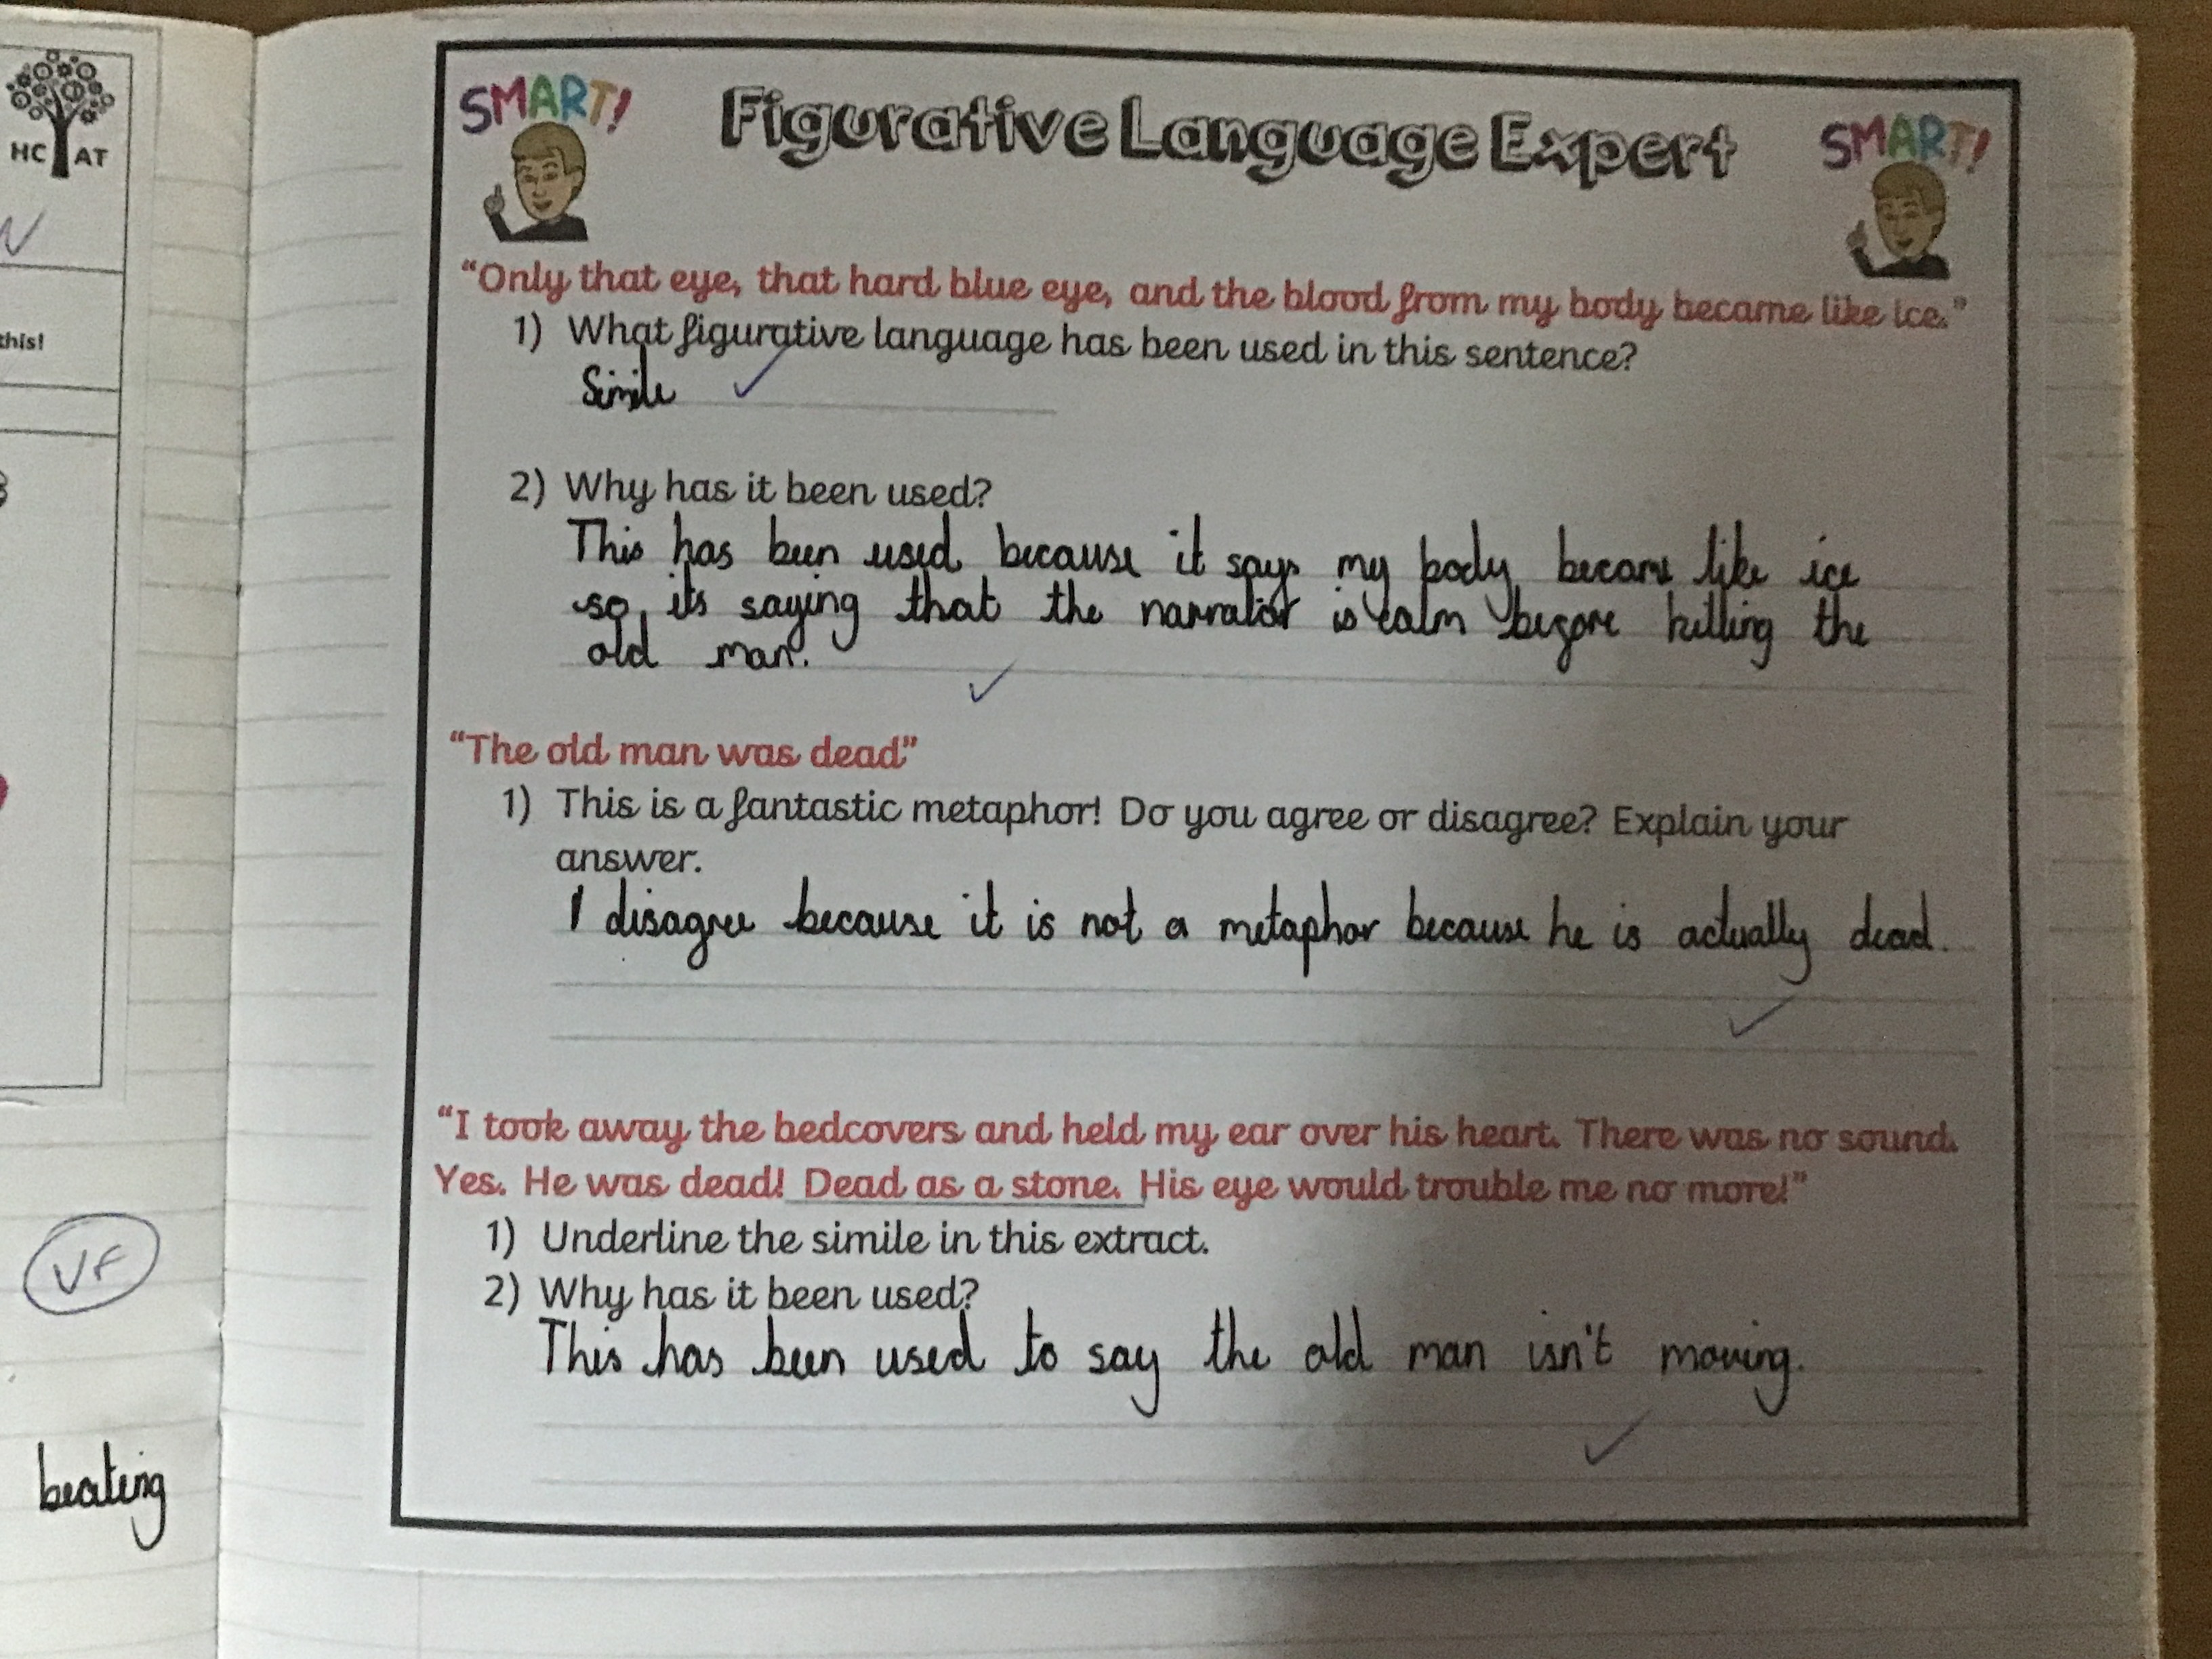 HC AT
this!
VF
beating
SMART!
Figurative Language Expert
SMART!
"Only that eye, that hard blue eye, and the blood from my body became like ice."
1) What figurative language has been used in this sentence?
Simile
2) Why has it been used?
This has been used because it says my body became like ice
so its saying that the narrator is calm before killing the
old man.
"The old man was dead"
1) This is a fantastic metaphor! Do you agree or disagree? Explain your
answer.
I disagree because it is not a metaphor because he is actually dead.
"I took away the bedcovers and held my ear over his heart. There was no sound.
Yes. He was dead! Dead as a stone. His eye would trouble me no more!"
1) Underline the simile in this extract.
2) Why has it been used?
This has been used to say the old man isn't moving.